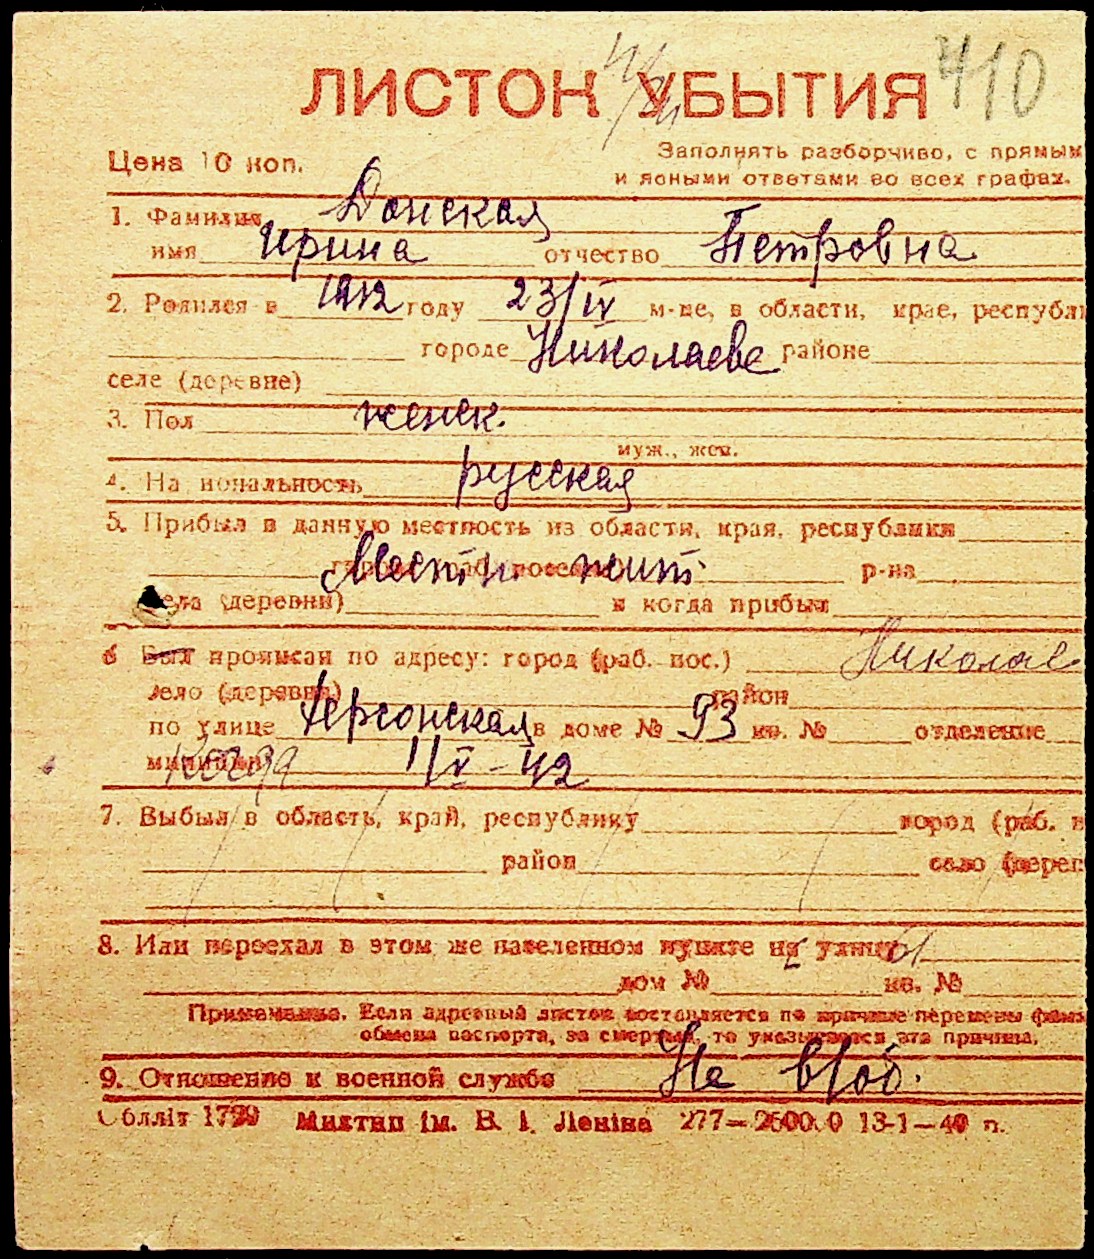 ЛИСТОК УБЫТИЯ 410
Цена 10 коп.
Заполнять разборчиво, с прямым
и ясными ответами во всех графах.
1. Фамилия Донская
имя Ирина отчество Петровна
2. Родился в 1912 году 23/IV м-це, в области, крае, республи
городе Николаеве районе
селе (деревне)
3. Пол женск.
муж., жен.
4. На иональность русская
5. Прибыл в данную местность из области, края, республики
Местн. жит. р-на
села (деревни) и когда прибыл
6 Был прописан по адресу: город (раб. пос.) Николае
село (деревня) район
по улице Херсонская в доме № 93 кв. № отделение
милиции Когда 11/V-42
7. Выбыл в область, край, республику город (раб. п
район село (дерев
8. Или переехал в этом же населенном пункте на улицу
дом № кв. №
Примечание. Если адресный листок составляется по причине перемены фами
обмена паспорта, за смертью, то указывается эта причина.
9. Отношение к военной службе Не в/об.
Облліт 1799 Миктип ім. В. І. Леніна 277— 13-1—40 п.